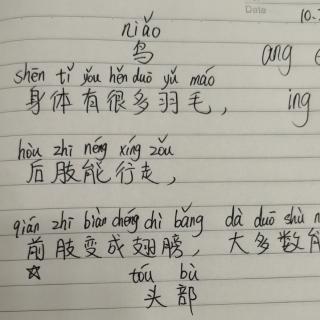 Date
10.
niǎo
鸟 ang
shēn tǐ yǒu hěn duō yǔ máo
身体有很多羽毛， ing
hòu zhī néng xíng zǒu
后肢能行走，
qián zhī biàn chéng chì bǎng dà duō shù n
前肢变成翅膀，大多数能
☆ tóu bù
头部